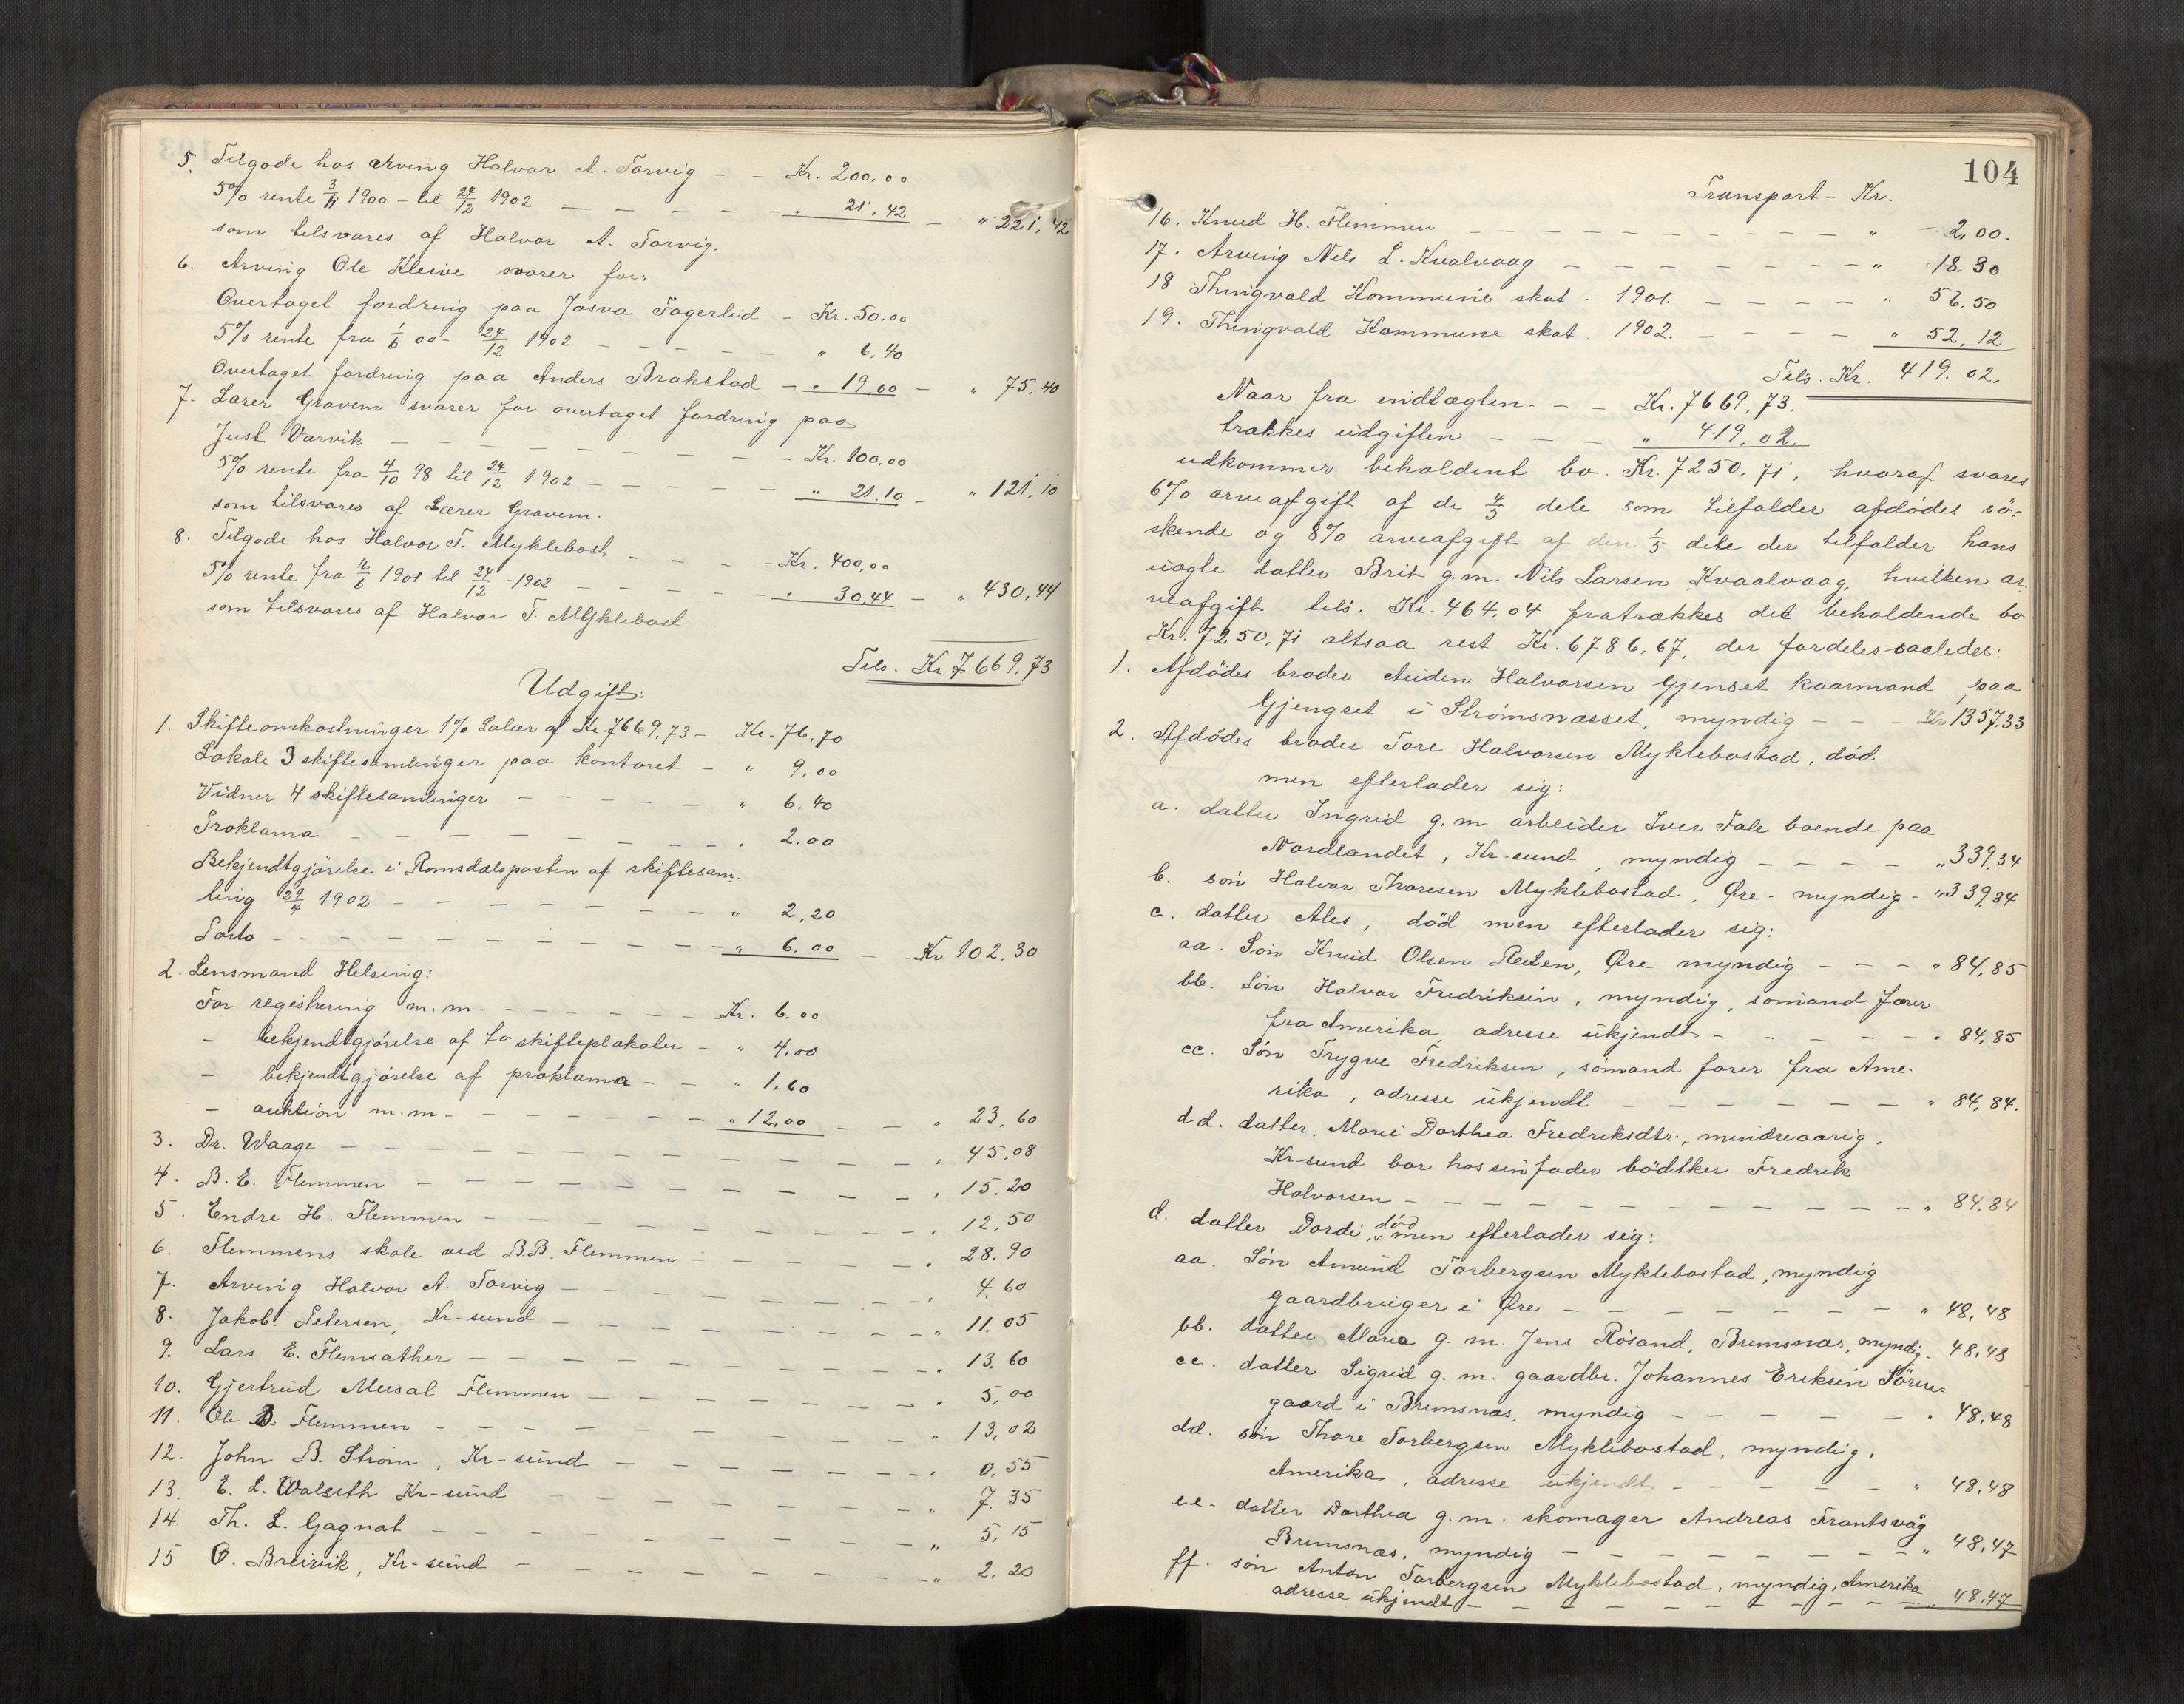 5. Tilgode hos Arving Halvor A. Torvig - - Kr. 200.00
5% rente 3/11 1900 - til 24/12 1902 - - - - - " 21,42 - " 221,42
som tilsvares af Halvor A. Torvig.
6. Arving Ole Kleive svarer for:
Overtaget fordring paa Josva Fagerlid - Kr. 50.00
5% rente fra 1/6 00 - 24/12 1902 - - - - - " 6,40
Overtaget fordring paa Anders Brakstad - " 19,00 - " 75,40
7. Lærer Gravem svarer for overtaget fordring paa
Just Varvik - - - - - - - Kr. 100,00
5% rente fra 4/10 98 til 24/12 1902 - - - - - " 21.10 - " 121,10
som tilsvares af Lærer Gravem.
8. Tilgode hos Halvor T. Myklebost - - - - Kr. 400,00
5% rente fra 16/6 1901 til 24/12 - 1902 - - - - - " 30,44 - " 430,44
som tilsvares af Halvor T. Myklebost
Tils. Kr 7669,73
Udgift:
1. Skifteomkostninger 1% Salær af Kr. 7669,73 - Kr. 76,70
Lokale 3 skiftesamlinger paa kontoret - " 9,00
Vidner 4 skiftesamlinger - - - - - " 6.40
Proklama - - - - - - " 2,00
Bekjendtgjörelse i Romsdalsposten af skiftesam-
ling 29/4 1902 - - - - - - - " 2,20
Porto - - - - - - - - - " 6,00 - Kr 102,30
2. Lensmand Helsing:
For registrering m.m. - - - - - - Kr. 6.00
- bekjendtgjörelse af to skifteplakater - " 4,00
- bekjendtgjörelse af proklama - - " 1,60
- auktion m.m - - - - - - - " 12,00 - - " 23,60
3. Dr. Waage - - - - - - - - - - " 45,08
4. B. E. Flemmen - - - - - - - - - " 15,20
5. Endre H. Flemmen - - - - - - - - " 12,50
6. Flemmens skole ved B.B. Flemmen - - - - - " 28.90
7. Arving Halvor A. Torvig - - - - - - - " 4,60
8. Jakob Petersen, Kr-sund - - - - - - - " 11.05
9. Lars E. Flemsæther - - - - - - - - " 13.60
10. Gjertrud Meisal Flemmen - - - - - - - " 5,00
11. Ole B. Flemmen - - - - - - - - " 13,02
12. John B. Strøm, Kr-sund - - - - - - - " 0.55
13. E. L. Walseth Kr-sund - - - - - - - " 7.35
14. Th. L. Gagnat - - - - - - - - - " 5,15
15 O. Breivik, Kr-sund - - - - - - - - " 2.20
104
Transport - Kr.
16. Knud H. Flemmen - - - - - - - - - - " - 2,00.
17. Arving Nils L. Kvalvaag - - - - - - - " 18.30
18 Thingvald Kommune skat. 1901. - - - - - " 56.50
19. Thingvald Kommune skat. 1902. - - - - " 52,12
Tils. Kr. 419.02.
Naar fra indtægten - - Kr. 7669,73.
trækkes udgiften - - - " 419.02.
udkommer beholdent bo Kr. 7250,71, hvoraf svares
6% arveafgift af de 4/5 dele som tilfalder afdödes sö-
skende og 8% arveafgift af den 1/5 dele der tilfalder hans
uægte datter Brit g.m. Nils Larsen Kvaalvaag, hvilken ar-
veafgift tils. Kr. 464,04 fratrækkes det beholdende bo
Kr. 7250,71 altsaa rest Kr. 6786,67, der fordeles saaledes:
1. Afdödes broder Auden Halvorsen Gjenset kaarmand paa
Gjengset i Strömsnæsset, myndig - - - Kr 1357,33
2. Afdödes broder Tore Halvorsen Myklebostad, död
men efterlader sig:
a. datter Ingrid g.m arbeider Iver Fale boende paa
Nordlandet, Kr-sund, myndig - - - - " 339,34
b. sön Halvor Thoresen Myklebostad, Øre - myndig - " 339,34
c. datter Ales, död men efterlader sig:
aa. Sön Knud Olsen Reiten, Øre myndig - - - " 84,85
bb. Sön Halvor Fredriksen, myndig, sömand farer
fra Amerika, adresse ukjendt - - - - - " 84,85
cc. Sön Trygve Fredriksen, sömand farer fra Ame-
rika, adresse ukjendt - - - - - - - " 84,84.
dd. datter, Marie Dorthea Fredriksdtr., mindreaarig,
Kr-sund bor hos sin fader bödtker Fredrik
Halvorsen - - - - - - - - - - - " 84,84
d. datter Dordi, död men efterlader sig:
aa. Sön Amund Torbergsen Myklebostad, myndig
gaardbruger i Øre - - - - - - - " 48,48
bb. datter Maria g. m. Jens Rösand, Bremsnæs, myndig. 48,48
cc. datter Sigrid g. m. gaardbr. Johannes Eriksen Sören-
gaard i Bremsnæs, myndig - - - - - - " 48,48
dd. sön Thore Torbergsen Myklebostad, myndig,
Amerika, adresse ukjendt - - - - - - " 48,48
ee. datter Dorthea g. m. skomager Andreas Frantsvåg
Bremsnæs, myndig - - - - - - - - " 48,47
ff. sön Anton Torbergsen Myklebostad, myndig, Amerika
adresse ukjendt - - - - - - - - - - " 48,47